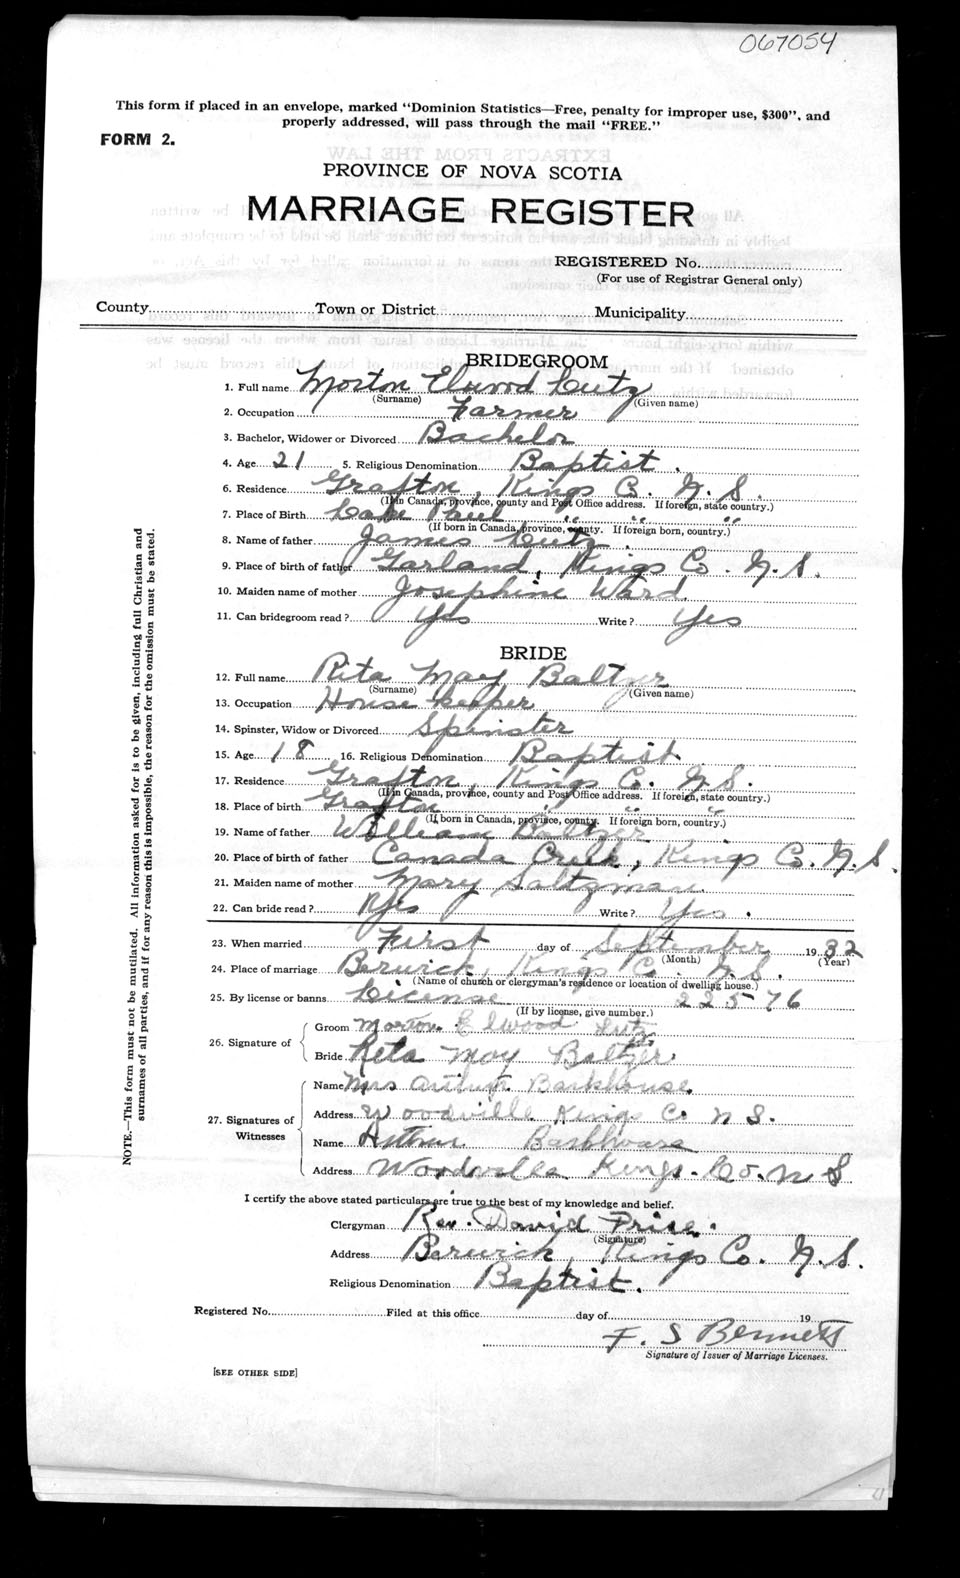 067054
This form if placed in an envelope, marked "Dominion Statistics—Free, penalty for improper use, $300", and
properly addressed, will pass through the mail "FREE."
FORM 2.
PROVINCE OF NOVA SCOTIA
MARRIAGE REGISTER
REGISTERED No.
(For use of Registrar General only)
County Town or District Municipality
BRIDEGROOM
1. Full name Morton Elwood Lutz
(Surname) (Given name)
2. Occupation Farmer
3. Bachelor, Widower or Divorced Bachelor
4. Age 21 5. Religious Denomination Baptist.
6. Residence Grafton, Kings Co. N.S.
(If in Canada, province, county and Post Office address. If foreign, state country.)
7. Place of Birth Lake Paul " " "
(If born in Canada, province, county. If foreign born, country.)
8. Name of father James Lutz.
9. Place of birth of father Garland, Kings Co. N.S.
10. Maiden name of mother Josephine Ward
11. Can bridegroom read? Yes Write? Yes
BRIDE
12. Full name Rita May Baltzer
(Surname) (Given name)
13. Occupation House keeper
14. Spinster, Widow or Divorced Spinster
15. Age 18 16. Religious Denomination Baptist.
17. Residence Grafton, Kings Co. N.S.
(If in Canada, province, county and Post Office address. If foreign, state country.)
18. Place of birth Grafton " " "
(If born in Canada, province, county. If foreign born, country.)
19. Name of father William Baltzer
20. Place of birth of father Canada Creek, Kings Co. N.S.
21. Maiden name of mother Mary Saltzman
22. Can bride read? Yes Write? Yes.
23. When married First day of September 1932
(Month) (Year)
24. Place of marriage Berwick, Kings Co. N.S.
(Name of church or clergyman's residence or location of dwelling house.)
25. By license or banns License 22576
(If by license, give number.)
26. Signature of
Groom Morton Elwood Lutz
Bride Rita May Baltzer
27. Signatures of Witnesses
Name Mrs Arthur Barkhouse.
Address Woodville Kings Co N S.
Name Arthur Barkhouse
Address Woodville Kings. Co. N S
I certify the above stated particulars are true to the best of my knowledge and belief.
Clergyman Rev. David Price.
(Signature)
Address Berwick, Kings Co. N.S.
Religious Denomination Baptist.
Registered No. Filed at this office day of 19
F. S Bennett
Signature of Issuer of Marriage Licenses.
[SEE OTHER SIDE]
NOTE.—This form must not be mutilated. All information asked for is to be given, including full Christian and
surnames of all parties, and if for any reason this is impossible, the reason for the omission must be stated.